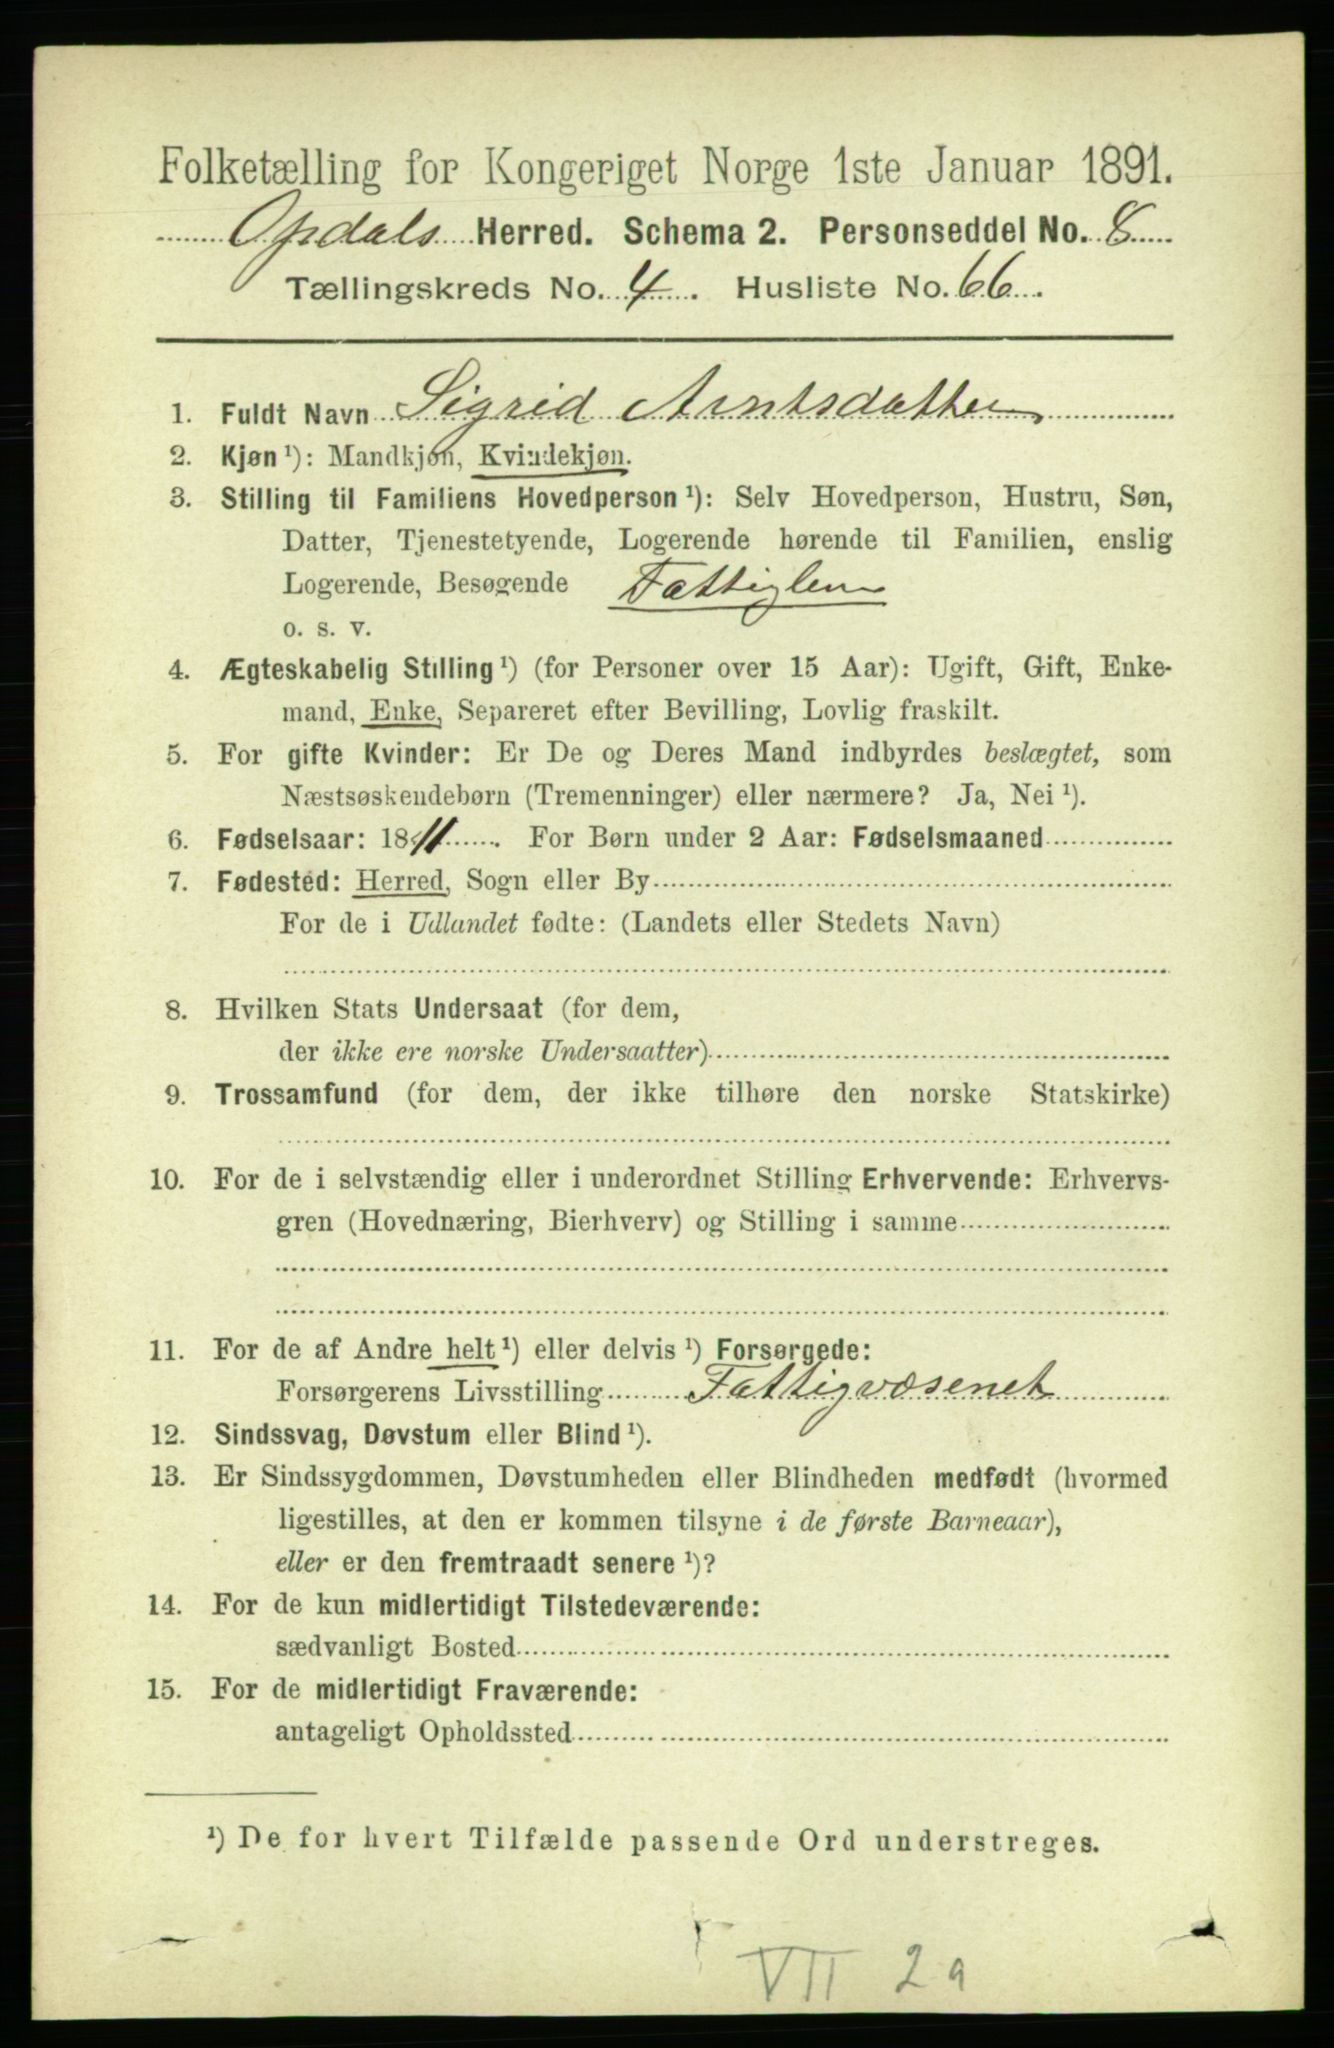 Folketælling for Kongeriget Norge 1ste Januar 1891.
Opdals Herred. Schema 2. Personseddel No. 8
Tællingskreds No. 4. Husliste No. 66.
1. Fuldt Navn Sigrid Arntsdatter
2. Kjøn¹): Mandkjøn, Kvindekjøn.
3. Stilling til Familiens Hovedperson¹): Selv Hovedperson, Hustru, Søn,
Datter, Tjenestetyende, Logerende hørende til Familien, enslig
Logerende, Besøgende Fattiglem
o. s. v.
4. Ægteskabelig Stilling¹) (for Personer over 15 Aar): Ugift, Gift, Enke-
mand, Enke, Separeret efter Bevilling, Lovlig fraskilt.
5. For gifte Kvinder: Er De og Deres Mand indbyrdes beslægtet, som
Næstsøskendebørn (Tremenninger) eller nærmere? Ja, Nei¹).
6. Fødselsaar: 1811. For Børn under 2 Aar: Fødselsmaaned
7. Fødested: Herred, Sogn eller By
For de i Udlandet fødte: (Landets eller Stedets Navn)
8. Hvilken Stats Undersaat (for dem,
der ikke ere norske Undersaatter)
9. Trossamfund (for dem, der ikke tilhøre den norske Statskirke)
10. For de i selvstændig eller i underordnet Stilling Erhvervende: Erhvervs-
gren (Hovednæring, Bierhverv) og Stilling i samme
11. For de af Andre helt¹) eller delvis¹) Forsørgede:
Forsørgerens Livsstilling Fattigvæsenet
12. Sindssvag, Døvstum eller Blind¹).
13. Er Sindssygdommen, Døvstumheden eller Blindheden medfødt (hvormed
ligestilles, at den er kommen tilsyne i de første Barneaar),
eller er den fremtraadt senere¹)?
14. For de kun midlertidigt Tilstedeværende:
sædvanligt Bosted
15. For de midlertidigt Fraværende:
antageligt Opholdssted
¹) De for hvert Tilfælde passende Ord understreges.
VII 2a